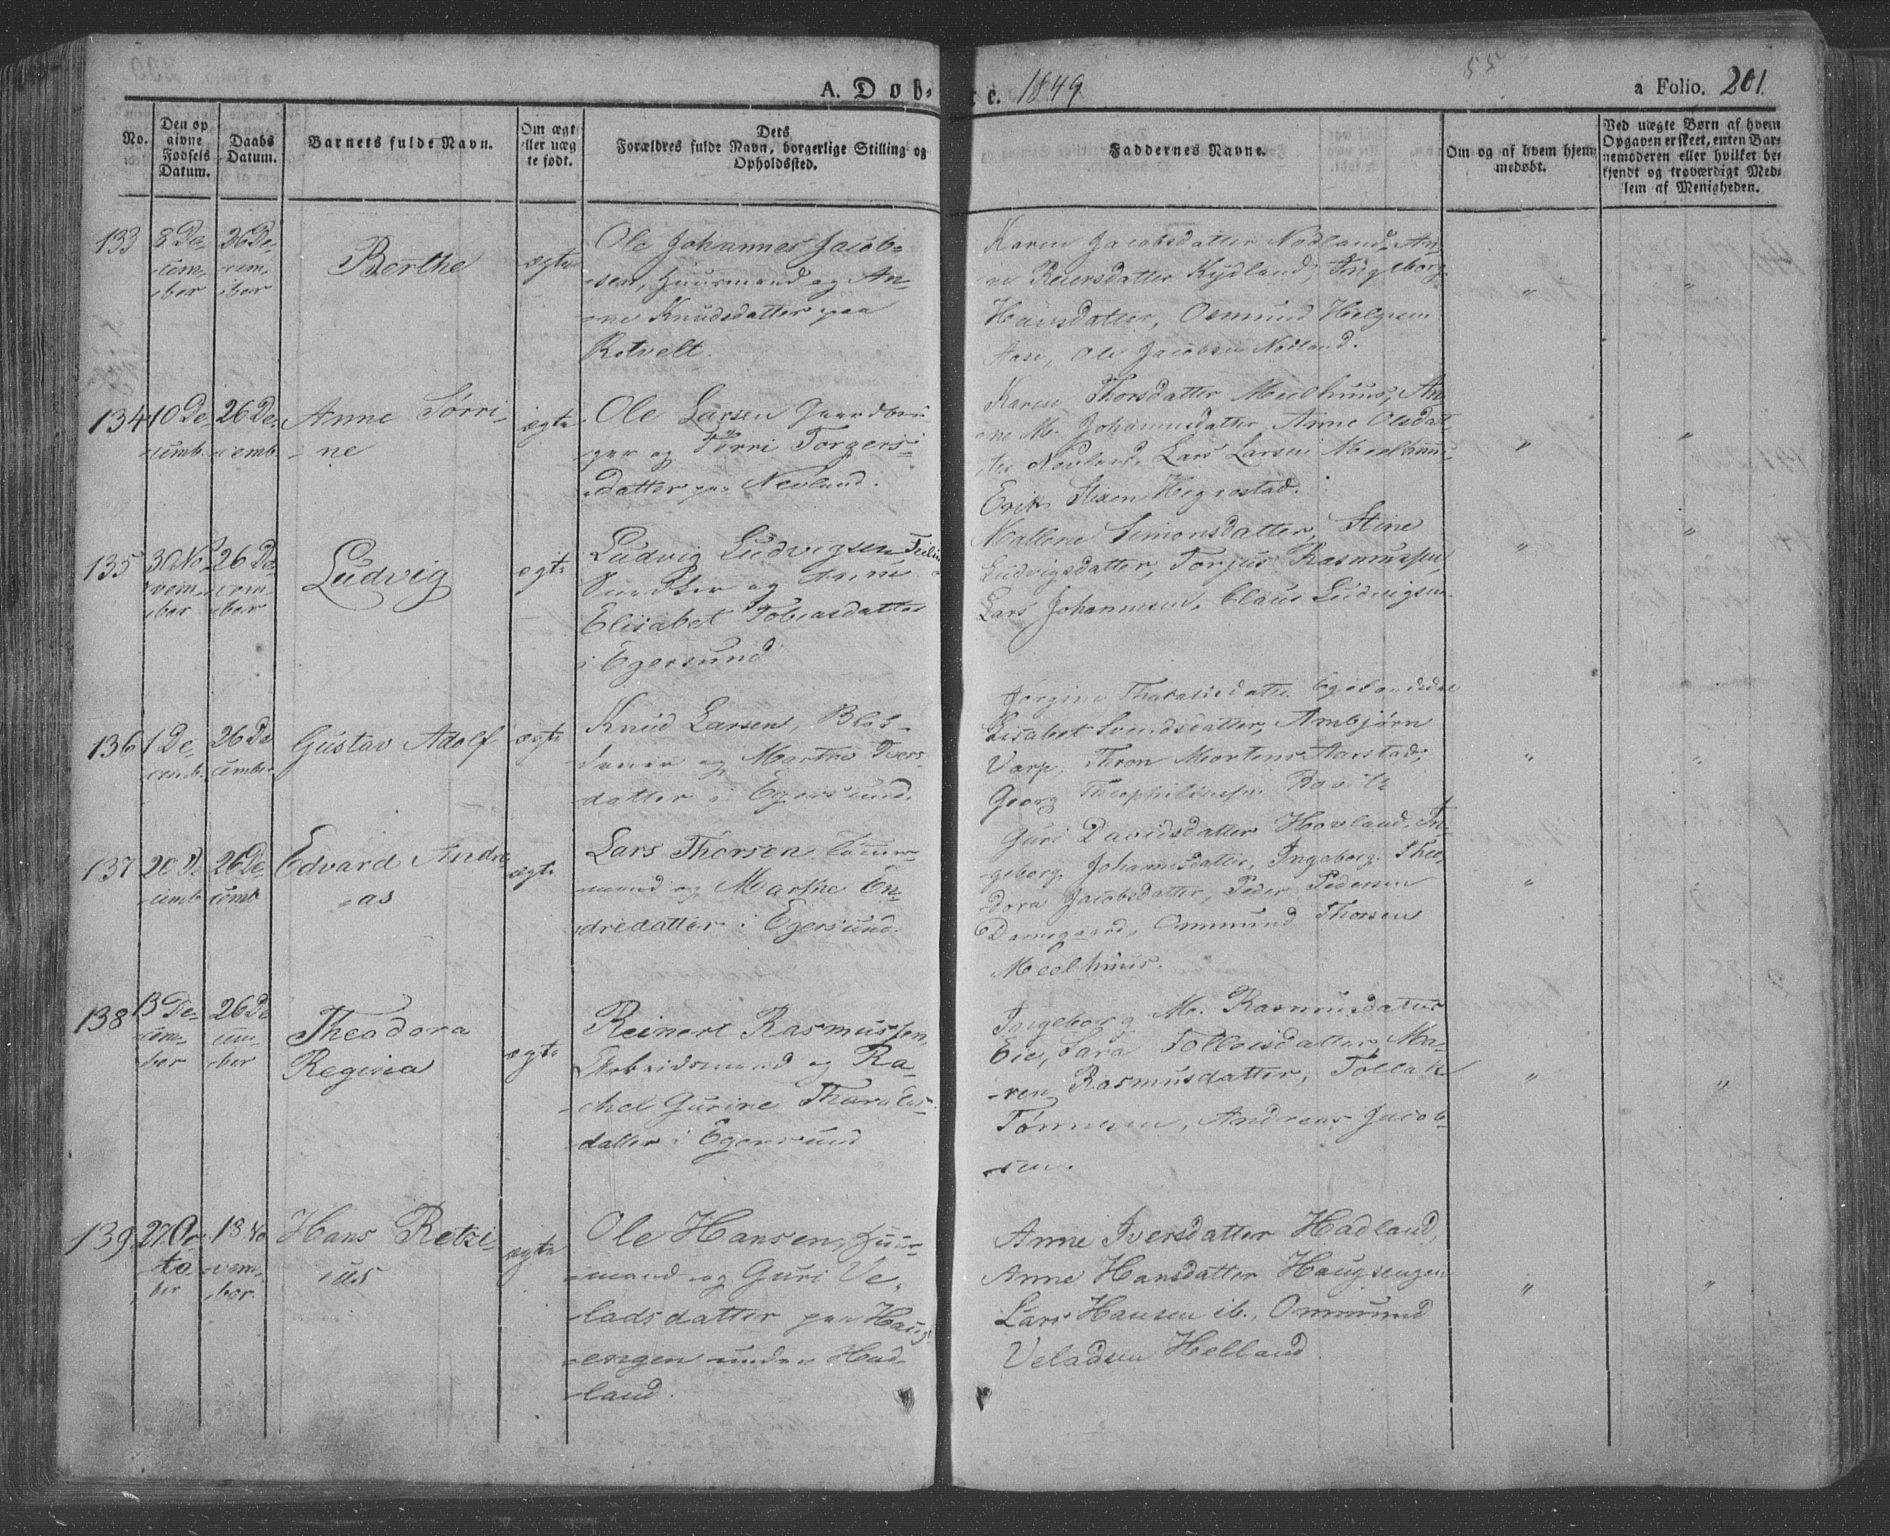 A. Dob- e. 1849 55 a Folio. 201.
No.
Den op
givne
Fødsels
Datum.
Daabs
Datum.
Barnets fulde Navn.
Om ægt
eller uæg
te født.
Dets
Forældres fulde Navn, borgerlige Stilling og
Opholdssted.
Faddernes Navne.
Om og af hvem hjem
medøbt.
Ved uægte Børn af hvem
Opgaven er skeet, enten Bar-
nemoderen eller hvilket be-
kjendt og troværdigt Med-
lem af Menigheden.
133
8 De-
cem-
ber
26 De-
cem-
ber
Berthe
ægte
Ole Johannes Jacob-
sen, Huusmand og An-
ne Knudsdatter paa
Rotvelt.
Karen Jacobsdatter Nodland, An-
ne Reiersdatter Kydland, Ingeborg
Hansdatter, Osmund Helgesen
Aase, Ole Jacobsen Nodland.
" "
134
10 De-
cemb.
26 De-
cemb
Anne Sørri-
ne
ægte
Ole Larsen Gaardbru-
ger og Tørri Torgers-
datter paa Nevland.
Karen Thorsdatter Meelhuus, An-
ne M. Johannesdatter, Anne Olsdat-
ter Nevland, Lars Larsen Meelhuus
Erik Hegrestad.
" "
135
30 No-
vem-
ber
26 De-
cem-
ber
Ludvig
ægte
Ludvig Ludvigsen
Snedker og Anne
Elisabet Tobiasdatter
i Egersund
Mallene Simonsdatter, Stine
Ludvigsdatter, Torjus Rasmussen,
Lars Johannesen, Claus Ludvigsen.
" "
136
1 De
cemb.
26 De
cember
Gustav Adolf
ægte
Knud Larsen,
og Marthe Ivers-
datter i Egersund.
Jorgine
Lisabet Svendsdatter, Ambjørn
Varp, Thron Mortens Aarstad,
Georg Theophiliussen
" "
137
20 De
cemb
26 De
cemb
Edvard Andre-
as
ægte
Lars Thorsen Tømmer-
mand og Marthe En-
dredatter i Egersund.
Guri Davidsdatter Hovland, In-
geborg Johannesdatter, Ingeborg Theo-
dora Jacobsdatter, Peder Pedersen
Damsgaard, Ommund Thorsen
Meelhuus.
"
138
13 De-
cem-
ber
26 De
cem-
ber
Theodora
Regina
ægte
Reinert Rasmussen,
Arbeidsmand og Ra-
chel Gurine Tharalds-
datter i Egersund
Ingeborg M. Rasmusdatter
Eie, Sara Tolleisdatter, Ma-
ren Rasmusdatter, Tollak
Tønnesen, Andreas Jacob-
sen.
" "
139
27 Oc-
to-
ber
18 No
vem-
ber
Hans Retzi-
us
ægte
Ole Hansen, Huus-
mand og Guri Ve-
ladsdatter paa Haug-
engen under Had-
land.
Anne Iversdatter Hadland,
Anne Hansdatter Haugsengen
Lars Hansen ib., Ommund
Veladsen Helland.
" "